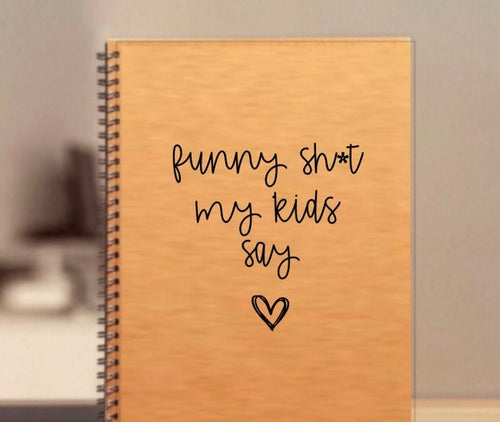 funny sh*t
my kids
say